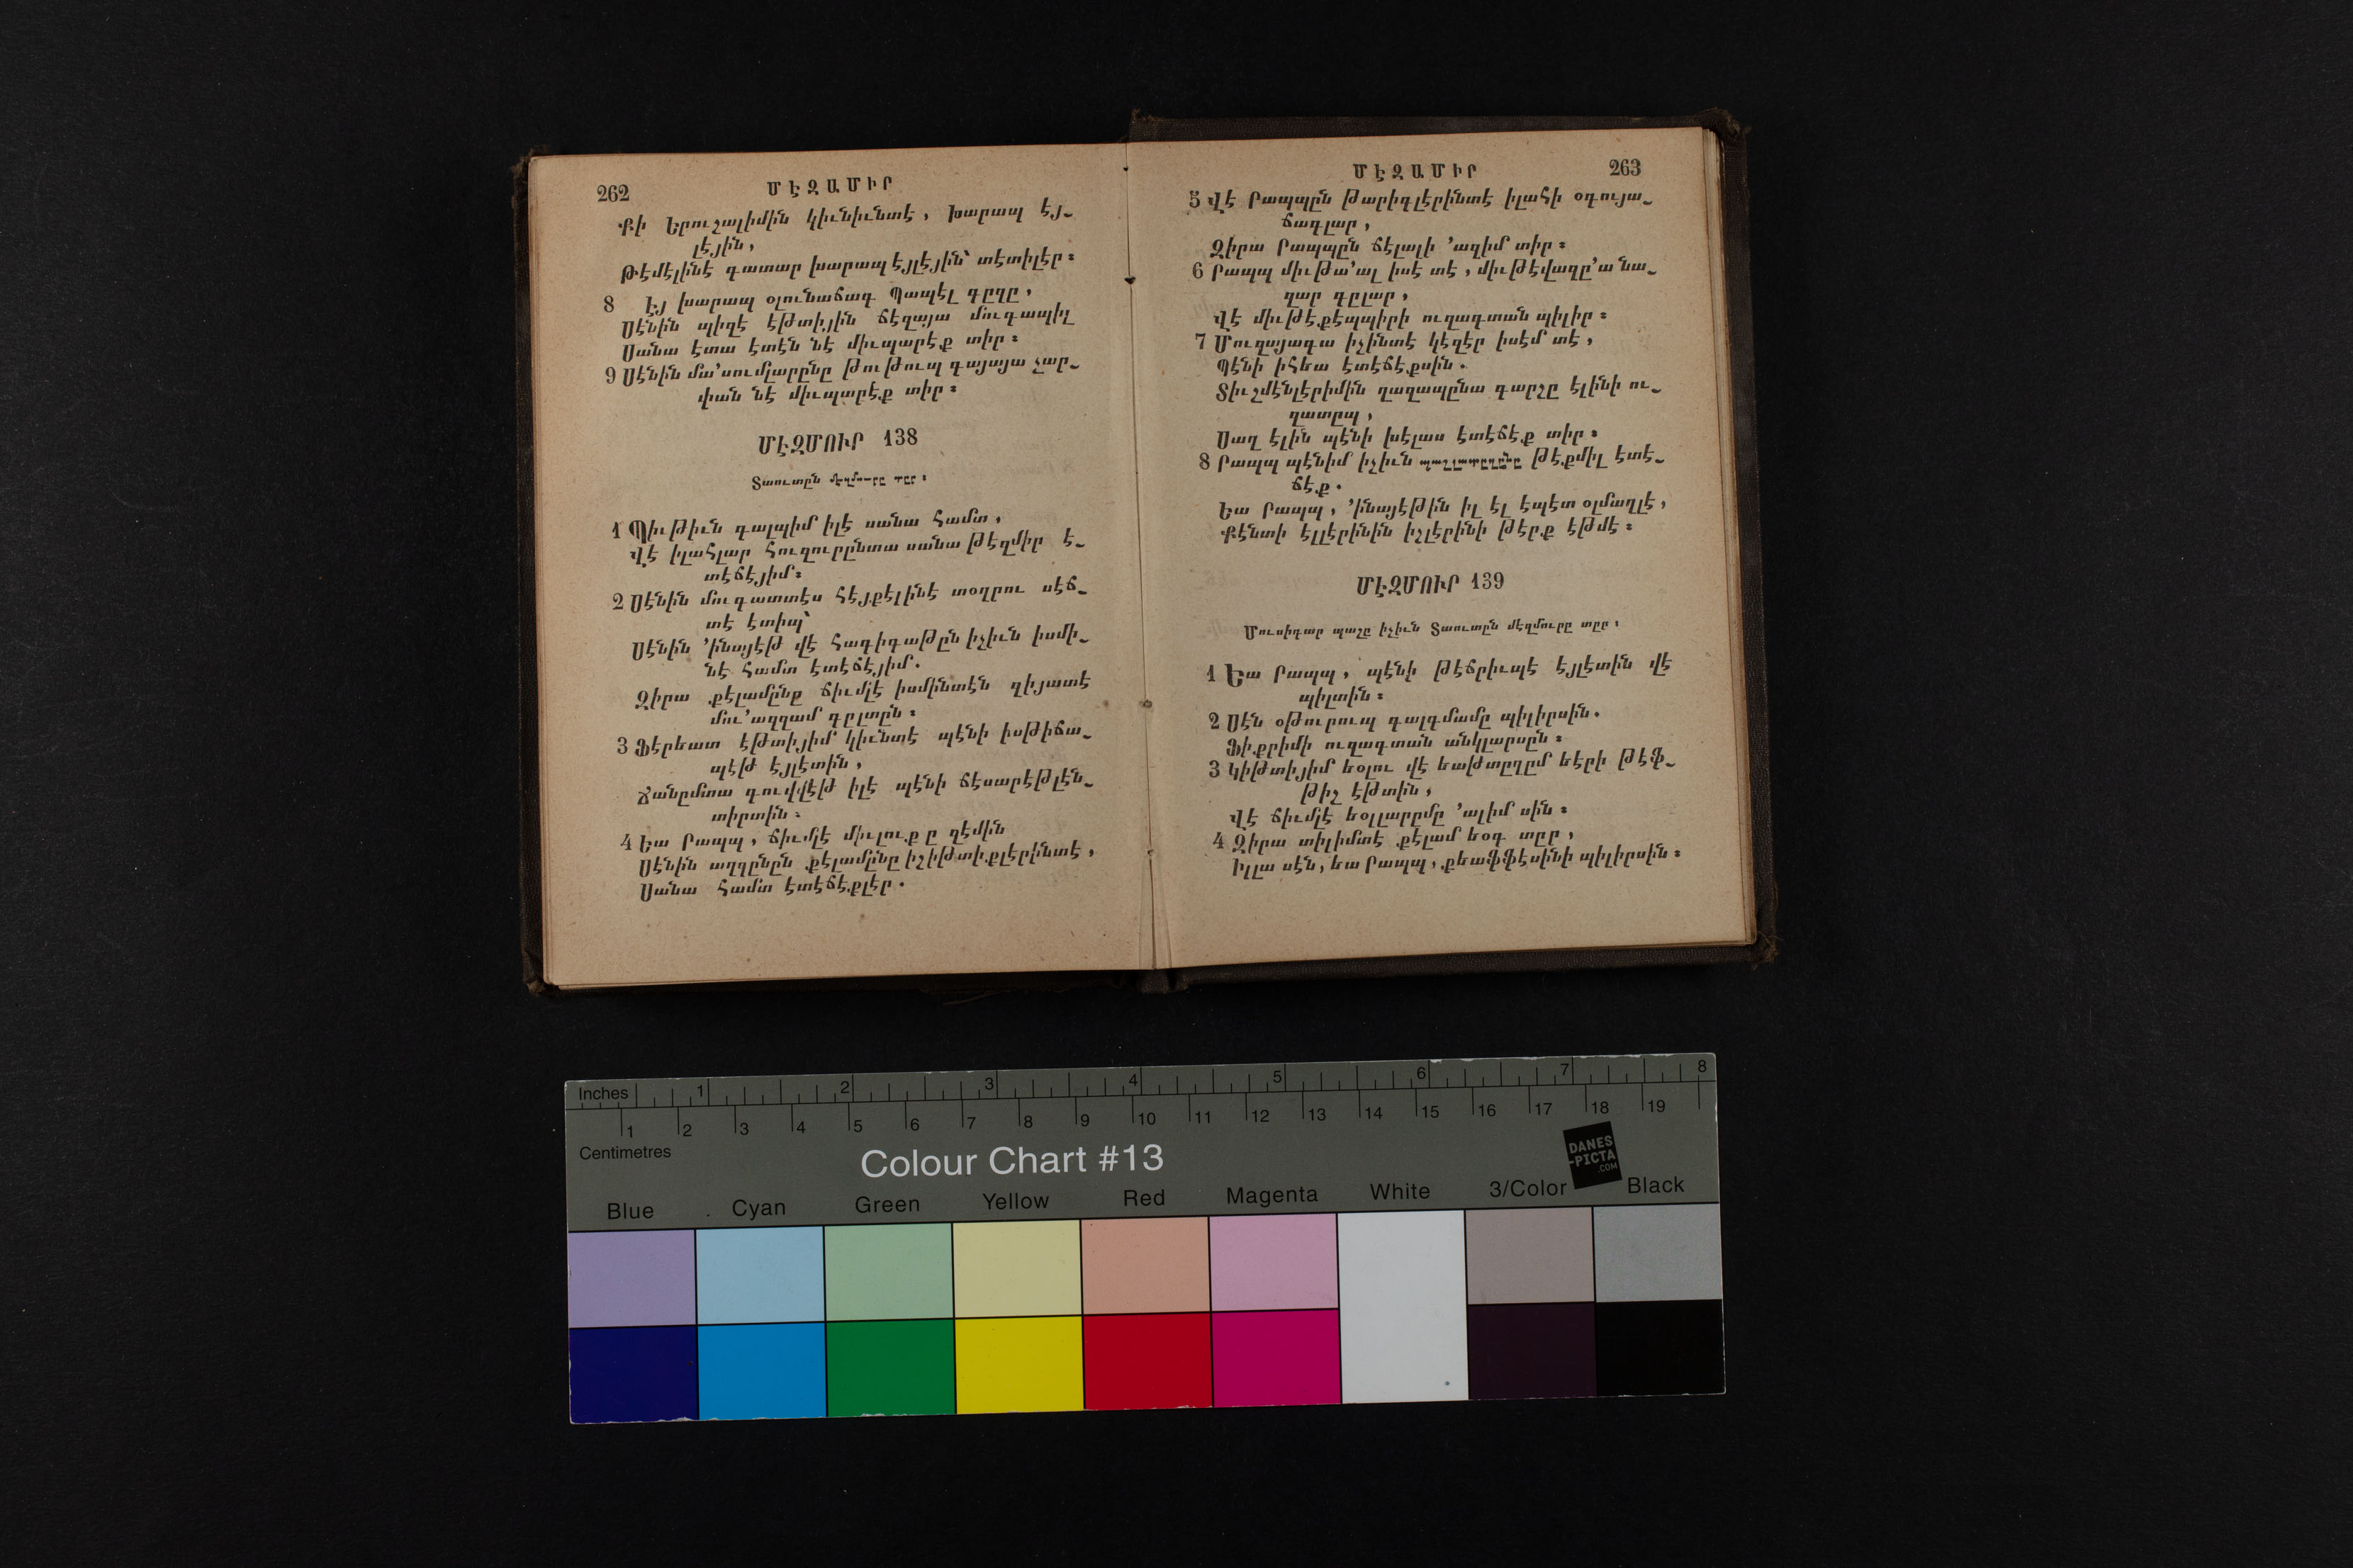 262
ՄԷԶԱՄԻՐ
Քի Երուշալիմին կիւնիւնտէ, խարապ էյ_
լէյին,
Թէմէլինէ գատար խարապ էյլէյին՝ տէտիլէր։
8 Էյ խարապ օլունաճագ Պապէլ գըզը,
Սէնին պիզէ էթտիյին ճէզայա մուգապիլ
Սանա էտա էտէն նէ միւպարէք տիր։
9 Սէնին մա՚սումլարընը թութուպ գայայա չար_
փան նէ միւպարէք տիր։
ՄԷԶՄՈՒՐ 138
Տաուտըն մէզմուրը տըր։
1 Պիւթիւն գալպիմ իլէ սանա համտ,
Վէ իլահլար հուզուրընտա սանա թէզմիր է_
տէճէյիմ։
2 Սէնին մուգատտէս հէյքէլինէ տօղրու սէճ_
տէ էտիպ՝
Սէնին ՚ինայէթ վէ հագիգաթըն իչիւն իսմի_
նէ համտ էտէճէյիմ.
Զիրա քէլամընը ճիւմլէ իսմինտէն զիյատէ
մու՚ազզամ գըլտըն։
3 Ֆէրեատ էթտիյիմ կիւնտէ պէնի իսթիճա_
պէթ էյլէտին,
Ճանըմտա գուվվէթ իլէ պէնի ճէսարէթլէն_
տիրտին։
4 Եա Րապպ, ճիւմլէ միւլուք ը զէմին
Սէնին աղզընըն քէլամընը իշիթտիքլէրինտէ,
Սանա համտ էտէճէքլէր.
ՄԷԶԱՄԻՐ
263
5 Վէ Րապպըն թարիգլէրինտէ իլահի օգույա_
ճագլար,
Զիրա Րապպըն ճէլալի ՚ազիմ տիր։
6 Րապպ միւթա՚ալ իսէ տէ, միւթէվազը՚ա նա_
զար գըլար,
Վէ միւթէքէպպիրի ուզագտան պիլիր։
7 Մուզայագա իչինտէ կէզէր իսէմ տէ,
Պէնի իհեա էտէճէքսին.
Տիւշմէնլէրիմին ղազապընա գարշը էլինի ու_
զատըպ,
Սաղ էլին պէնի խէլաս էտէճէք տիր։
8 Րապպ պէնիմ իչիւն պաշլատըղընը թէքմիլ էտէ_
ճէք.
Եա Րապպ, ՚ինայէթին իլ էլ էպէտ օլմաղլէ,
Քէնտի էլլէրինին իշլէրինի թէրք էթմէ։
ՄԷԶՄՈՒՐ 139
Մուսիգար պաշը իչիւն Տաուտըն մէզմուրը տըր,
1 Եա Րապպ, պէնի թէճրիւպէ էյլէտին վէ
պիլտին։
2 Սէն օթուրուպ գալգմամը պիլիրսին.
Ֆիքրիմի ուզագտան անկլարսըն։
3 Կիթտիյիմ եօլու վէ եաթտըղըմ եէրի թէֆ_
թիշ էթտին,
Վէ ճիւմլէ եօլլարըմը ՚ալիմ սին։
4 Զիրա տիլիմտէ քէլամ եօգ տըր,
Իլլա սէն, եա Րապպ, քեաֆֆէսինի պիլիրսին։
Inches 1 2 3 4 5 6 7 8
1 2 3 4 5 6 7 8 9 10 11 12 13 14 15 16 17 18 19
Centimetres
Colour Chart #13
DANES
-PICTA
.COM
Blue Cyan Green Yellow Red Magenta White 3/Color Black